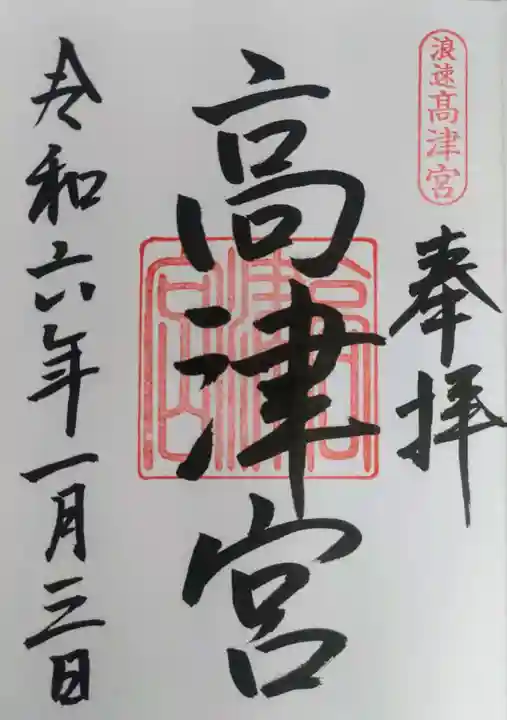 浪速高津宮
奉拝
高津宮
高津宮
令和六年一月三日